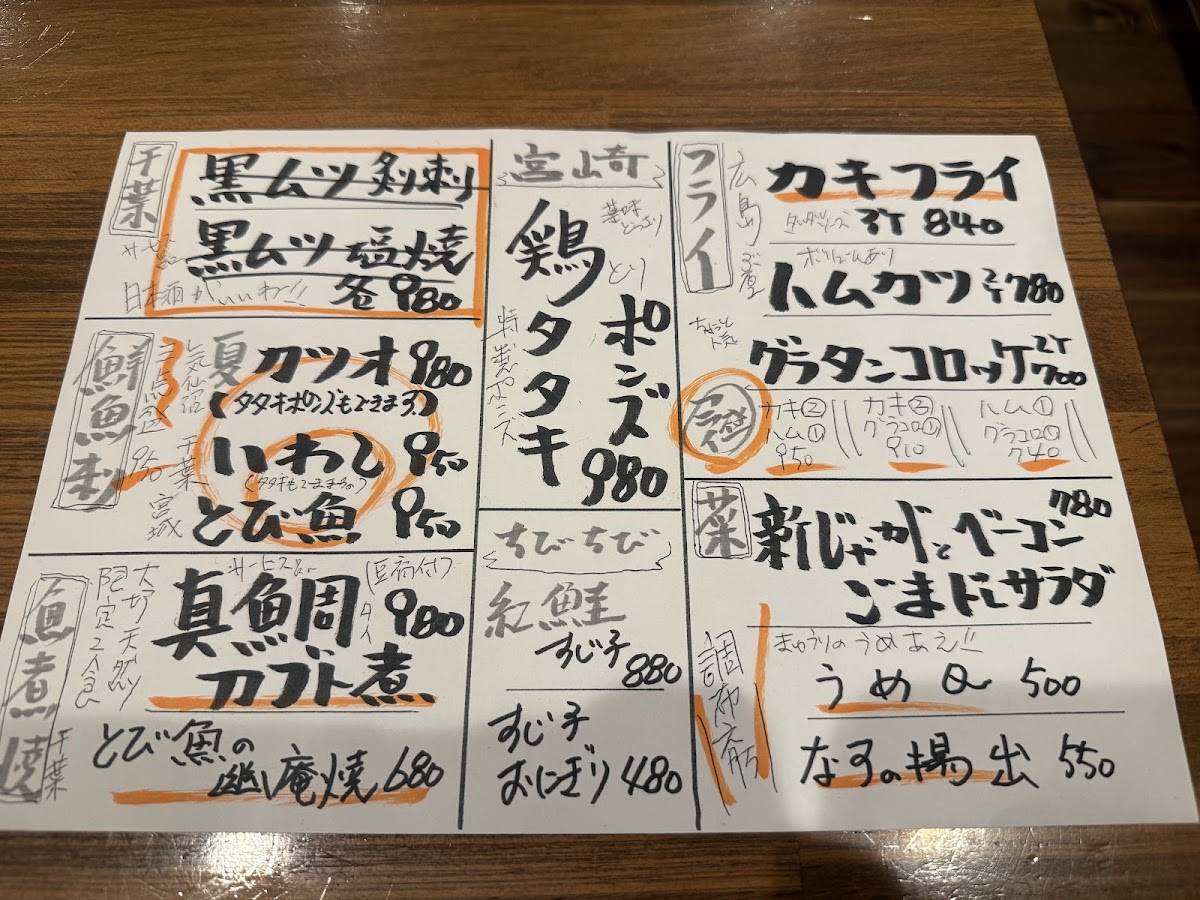 千葉
黒ムツ刺
黒ムツ塩焼
各980
サービス品
日本酒がいいね!!
鮮魚刺
三点盛
950
気仙沼
千葉
宮城
夏カツオ 980
(タタキポン入もできます)
いわし 950
とび魚 950
魚煮焼
大切 天然
限定2食
サービス
豆腐付
真鯛 980
タイ
カブト煮
千葉
とび魚の
幽庵焼 680
宮崎
薬味
どっさり
とり
鶏タタキ
特製ポンズ
ポンズ
980
ちびちび
紅鮭
すじ子
880
すじ子
おにぎり 480
フライ
広島
カキフライ
タルタルソース 3ケ 840
ボリュームあり
ハムカツ 2ケ 780
ちょっと
人気
グラタンコロッケ 2ケ
700
フライ
カキ②
ハム①
950
カキ②
グラコロ①
910
ハム①
グラコロ①
740
菜
新じゃがとベーコン 780
ごまドレサラダ
調布
きゅうりのうめあえ!!
うめQ 500
なすの揚出 550